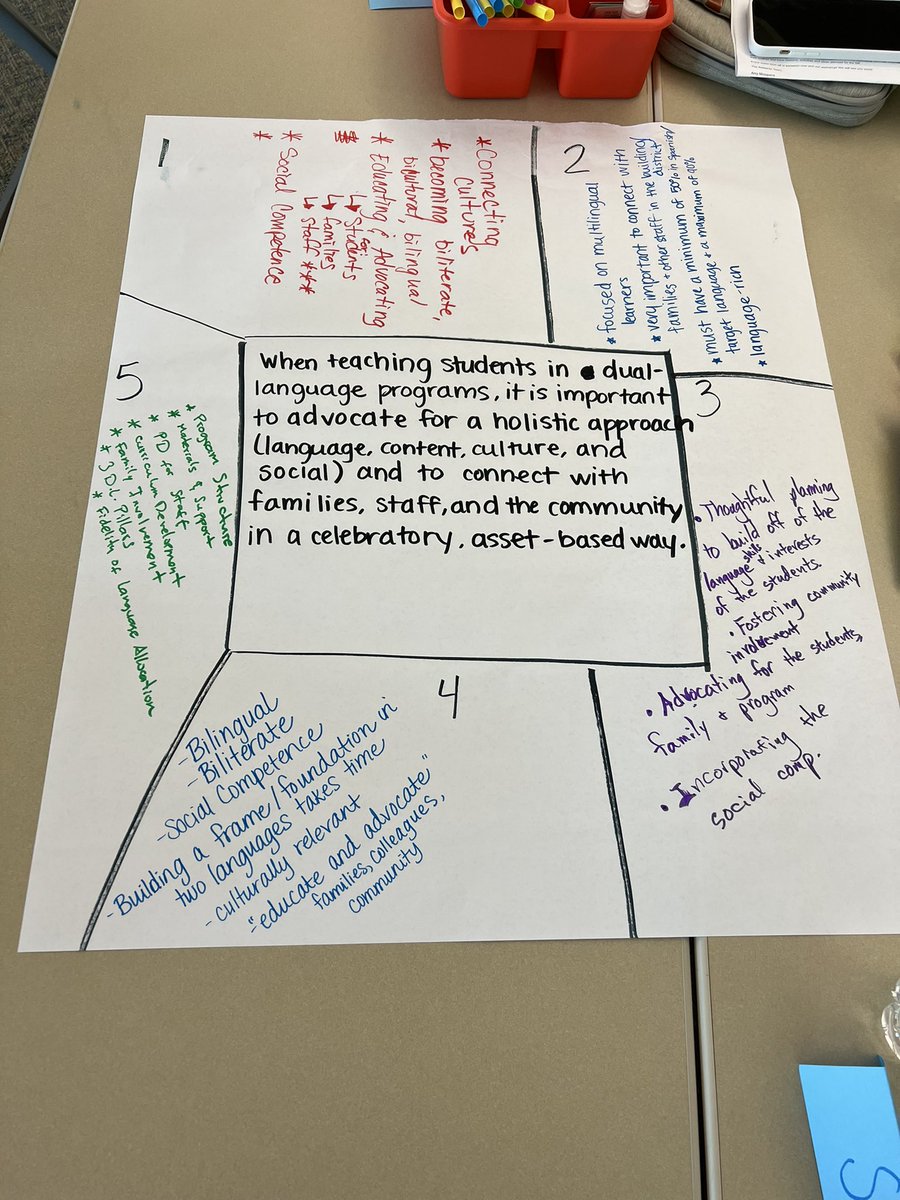 1
*Connecting
Cultures
* becoming biliterate,
bicultural, bilingual
* Educating & Advocating
↳ for students
↳ families
↳ staff ***
* Social Competence
*
2
* focused on multilingual
learners
* very important to connect with
families + other staff in the building/
district
* must have a minimum of 50% in Spanish/
target language + a maximum of 90%
* language-rich
When teaching students in dual-
language programs, it is important
to advocate for a holistic approach
(language, content, culture, and
social) and to connect with
families, staff, and the community
in a celebratory, asset-based way.
3
• Thoughtful planning
to build off of the
language skills + interests
of the students.
• Fostering community
involvement
• Advocating for the students,
family + program
• Incorporating the
social comp.
4
-Bilingual
-Biliterate
-Social Competence
-Building a frame/foundation in
two languages takes time
-culturally relevant
-"educate and advocate"
families, colleagues,
community
5
* Program Structure
* Materials & Support
* PD for Staff
* Curriculum Development
* Family Involvement
* 3 DL Pillars
* Fidelity of Language Allocation
S